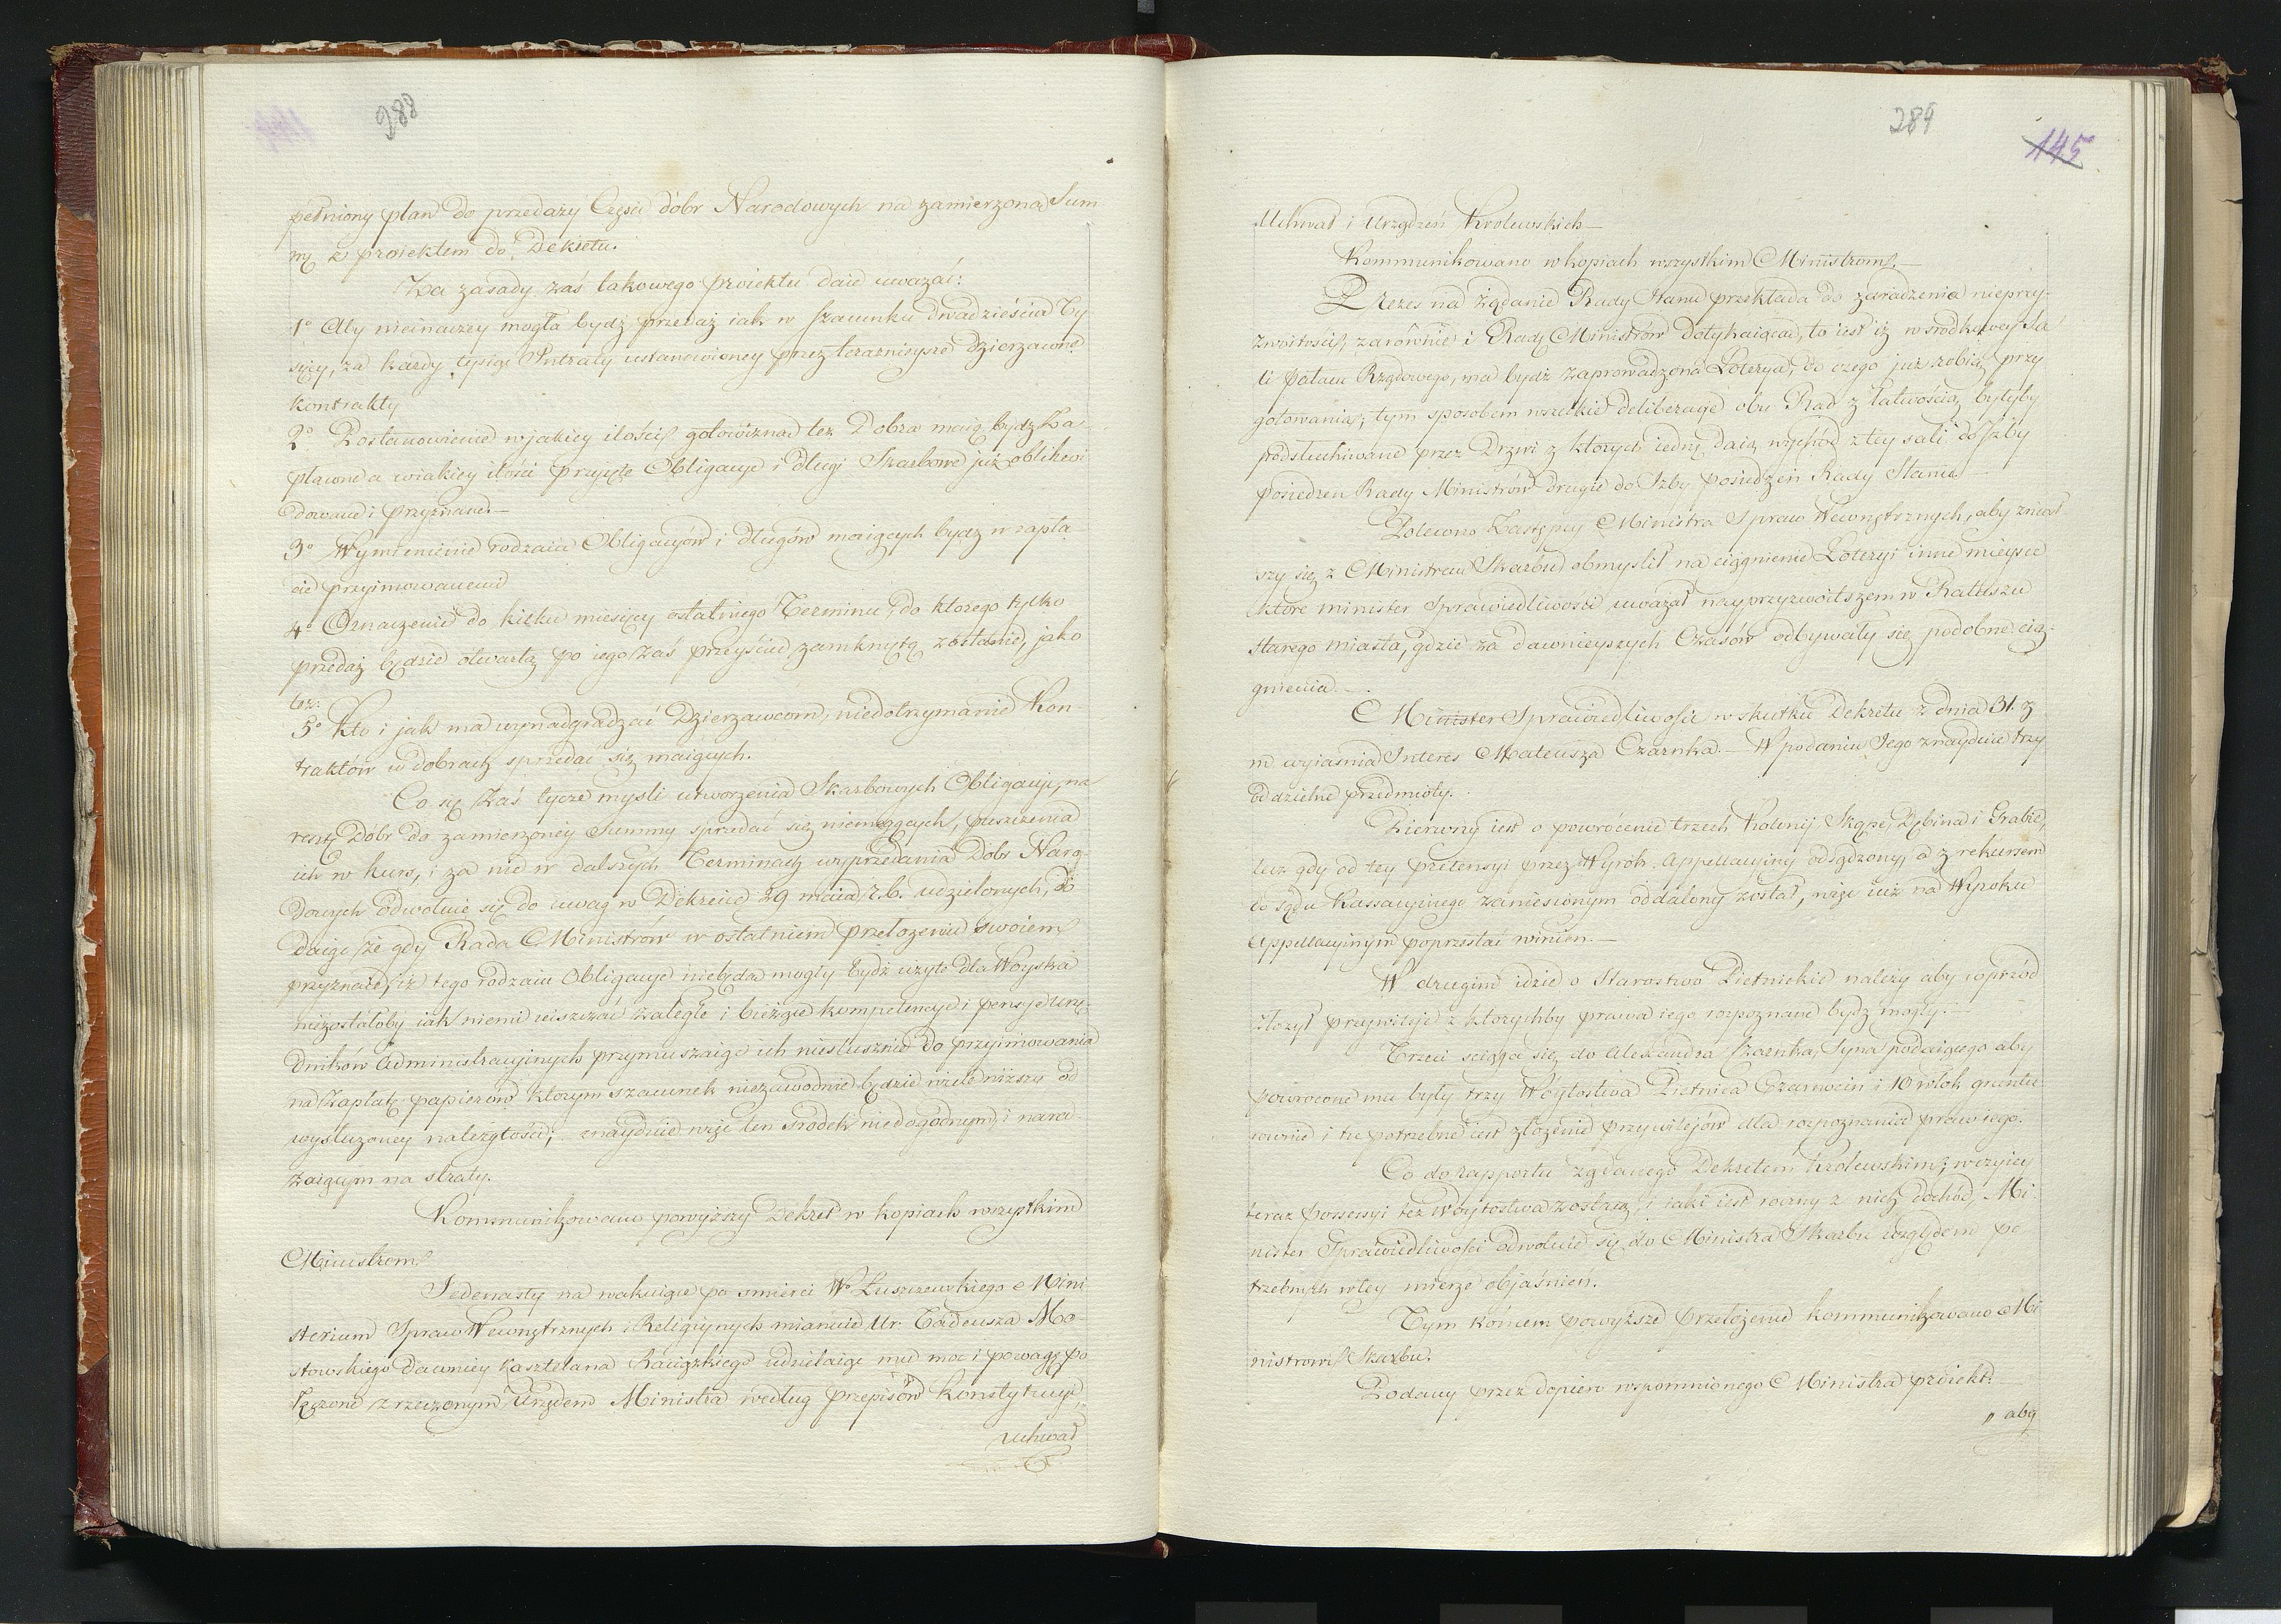 288
pełniony plan do przedaży Części dóbr Narodowych na zamierzoną Sum
mę z proiektem do Dekretu.
Za zasady zaś takowego proiektu daie uważać:
1° Aby nieinaczey mogła bydź przedaż iak w szacunku dwadzieścia ty
sięcy, za każdy tysiąc Intraty ustanowioney przez teraznieysze dzierzawne
kontrakty
2° Postanowienie w jakiey ilości gotowizna tez Dobra maią bydz za
płacone a w iakiey ilości przyięte Obligacye i długi Skarbowe już zlikwi
dowane i przyznane.—
3° Wymienienie rodzaiu Obligacyów i długów maiących bydz w zapła
cie przyimowanemi
4° Oznaczenie do kilku miesięcy ostatniego Terminu, do ktorego tylko
przedaż będzie otwartą po iego zaś przeyściu zamkniętą zostanie, jako
tez:
5° Kto i jak ma wynadgradzać Dzierzawcom, niedotrzymanie Kon-
traktów w dobrach sprzedać się maiących.
Co się zaś tycze mysli utworzenia Skarbowych Obligacyi, na
resztę Dóbr do zamierzoney Summy sprzedać się niemogących, puszczenia
ich w kurs, i za nie w dalszych Terminach wyprzedania Dobr Naro-
dowych odwołuie się do uwag w Dekrecie 29 maia r. b. udzielonych, do
daiąc że gdy Rada Ministrów w ostatniem przełozeniu swoiem
przyznaie, iż tego rodzaiu Obligacye niebędą mogły bydź uzyte dla Woyska
niezostałoby iak niemi uiszczać zaległe i bieżące kompetencye i pensye Urzę-
dników Administracyinych przymuszaiąc ich niesłusznie do przyimowania
na zapłatę papierow ktorym szacunek niezawodnie będzie wiele niższy od
wysłuzoney należytości; znayduie więc ten srodek niedogodnym, i nara-
zaiącym na straty.
Kommunikowano powyższy Dekret w kopiach wszystkim
Ministrom
Jedenasty na wakuiące po smierci Wo Łuszczewskiego Mini
sterium Spraw Wewnętrznych i Religiynych mianuie Ur. Tadeusza Mo-
stowskiego dawniey Kasztelana Raciązkiego udzielaiąc mu moc i powagę po
łączone z rzeczonym Urzędem Ministra według przepisów Konstytucyi,
uchwał
289
145
Uchwał i Urządzeń Krolewskich—
Kommunikowano w kopiach wszystkim Ministrom.—
Prezes na żądanie Rady Stanu przekłada do zaradzenia nieprzy-
zwoitości, zarównie i Radę Ministrów dotykaiącą, to iest iż w srodkowey Sa
li pałacu Rządowego, ma bydź zaprowadzona Loterya, do czego już robią przy
gotowania; tym sposobem wszelkie deliberacye obu Rad z łatwością byłyby
podsłuchiwane przez Drzwi z ktorych iedne daią wychód z tey sali do Izby
posiedzen Rady Ministrów drugie do Izby posiedzeń Rady Stanu.
Polecono Zastępcy Ministra Spraw Wewnętrznych, aby zniosł
szy się z Ministrem Skarbu obmyslił na ciągnienie Loteryi inne mieysce
ktore minister Sprawiedliwości uważał nayprzyzwoitszem w Ratuszu
starego miasta, gdzie za dawnieyszych Czasów odbywały się podobne cią-
gnienia.—
Minister Sprawiedliwości w skutku Dekretu z dnia 31. z
m. wyiasnia Interes Mateusza Czarnka.— W podaniu Jego znayduie trzy
oddzielne przedmioty.
Pierwszy iest o powrócenie trzech Kolonij Skąpe, Dębina i Grabie,
lecz gdy od tey pretensyi przez Wyrok Appellacyiny odsądzony, a z rekursem
do sądu Kassacyinego zaniesionym oddalony został, więc iuż na Wyroku
Appellacyinym poprzestać winien.—
W drugim idzie o Starostwo Pietnickie nalezy aby wprzód
złozył przywileje z ktorychby prawa iego rozpoznane bydź mogły.—
Trzeci sciąga się do Alexandra Czarnka, Syna podaiącego aby
powrócone mu były trzy Woytostwa Pietnica Czarnocin i 10 włok gruntu
rownie i tu potrzebne iest złozenie przywilejów dla rozpoznania praw iego.
Co do rapportu ządanego Dekretem Krolewskim; w czyiey
teraz possessyi też Woytostwa zostaią, i iaki iest roczny z nich dochód, Mi-
nister Sprawiedliwości odwołuie się do Ministra Skarbu względem po
trzebnych w tey mierze objaśnień.
Tym końcem powyższe przełożenie kommunikowano Mi
nistrowi Skarbu.
Podany przez dopiero wspomnionego Ministra proiekt:
„ aby